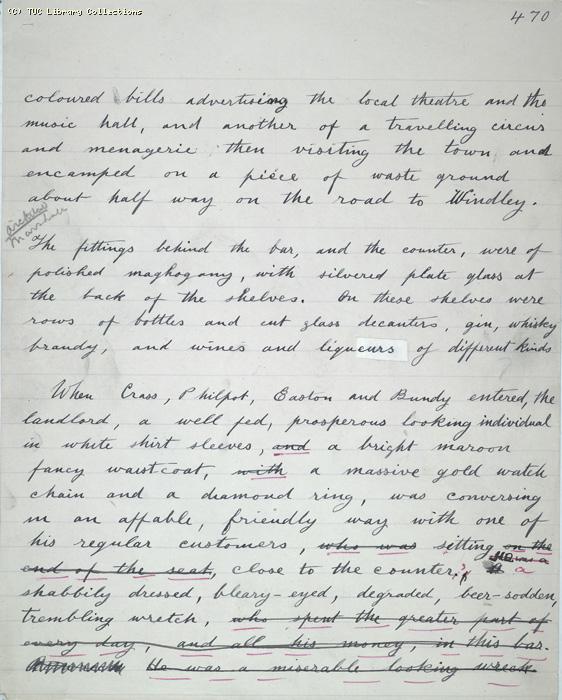 (C) TUC Library Collections
470
coloured bills advertising the local theatre and the
music hall, and another of a travelling circus
and menagerie then visiting the town and
encamped on a piece of waste ground
about half way on the road to Windley.
The fittings behind the bar, and the counter, were of
polished maghogany, with silvered plate glass at
the back of the shelves. On these shelves were
rows of bottles and cut glass decanters, gin, whisky
brandy, and wines and liqueurs of different kinds
When Crass, Philpot, Easton and Bundy entered, the
landlord, a well fed, prosperous looking individual
in white shirt sleeves, and a bright maroon
fancy waistcoat, with a massive gold watch
chain and a diamond ring, was conversing
in an affable, friendly way with one of
his regular customers, who was sitting on the
end of the seat, close to the counter, a
shabbily dressed, bleary-eyed, degraded, beer-sodden,
trembling wretch, who spent the greater part of
every day, and all his money, in this bar.
He was a miserable looking wreck